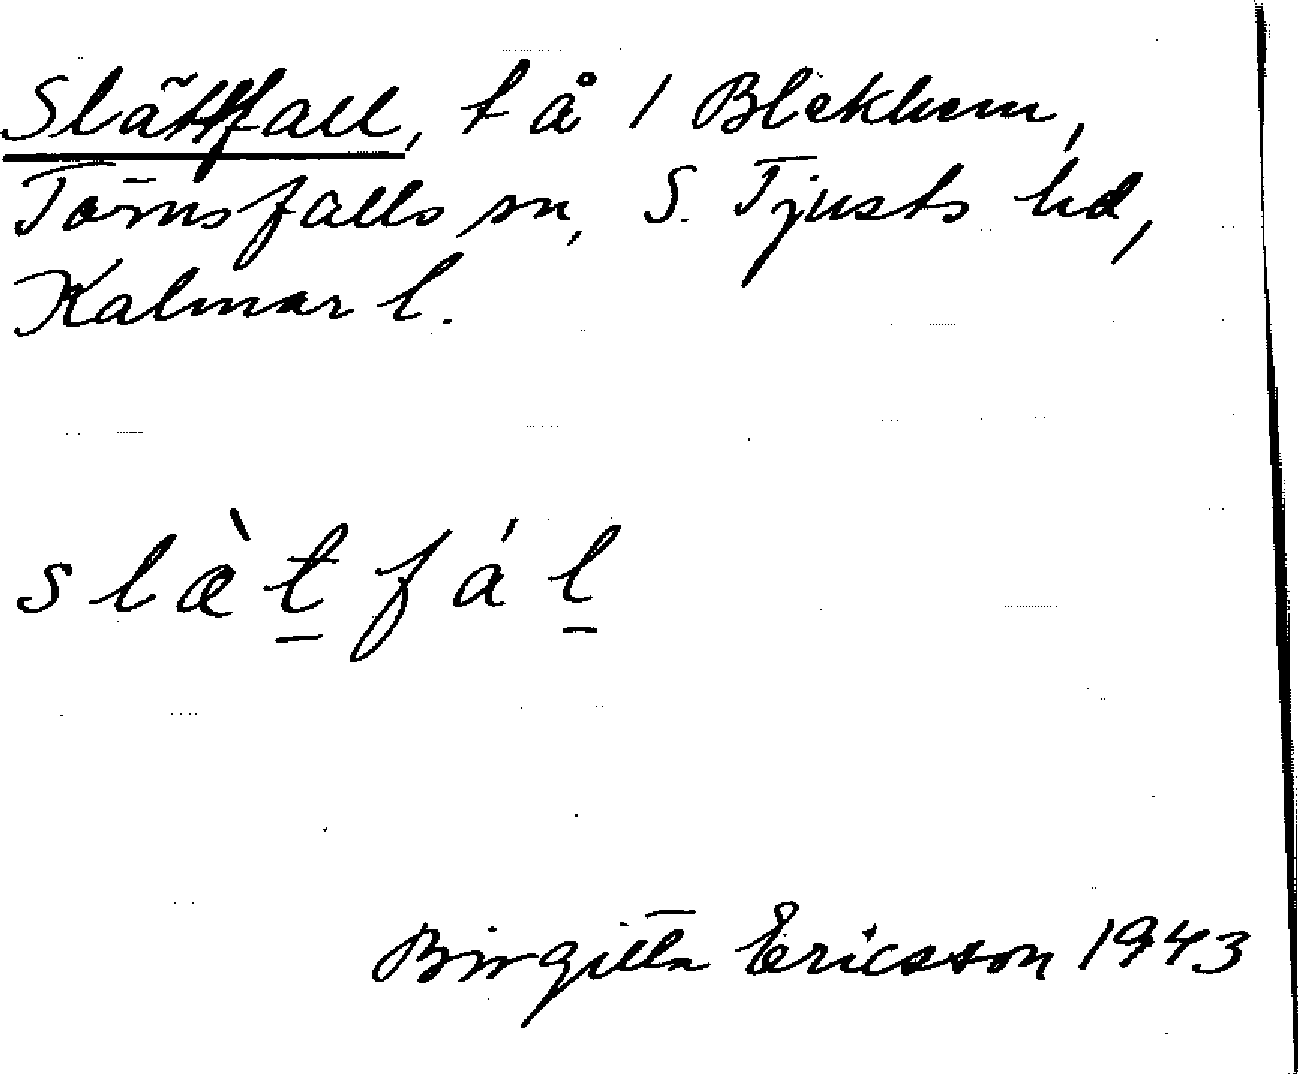 Slättfall, t å 1 Blekhem,
Törnsfalls sn, S. Tjusts hd,
Kalmar l.
slæ̀t̠ fál̠
Birgitta Ericsson 1943